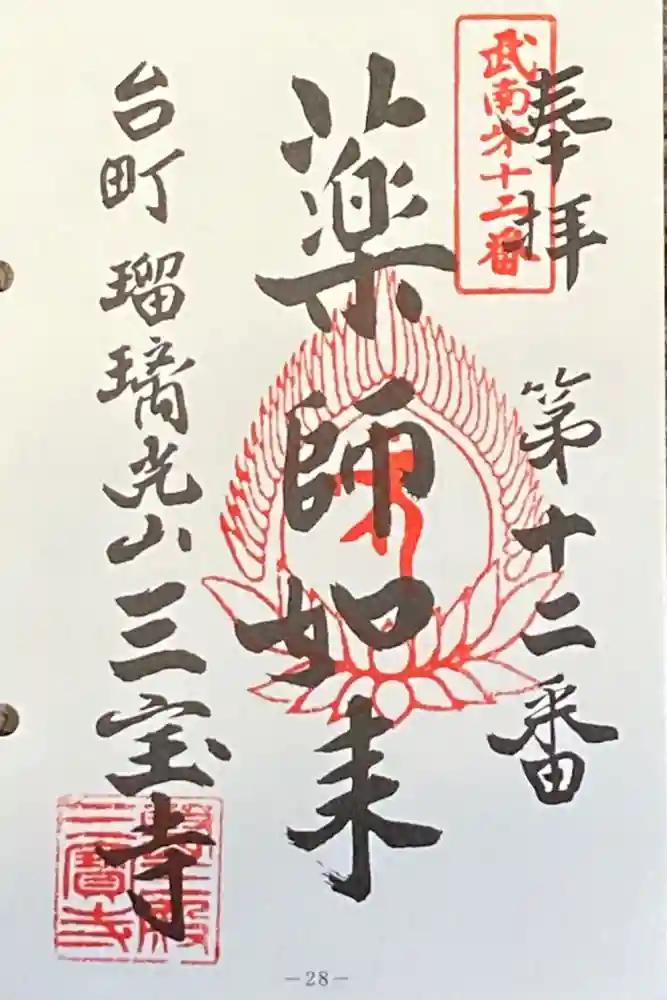 武南才十二番
奉拝
第十二番
薬師如来
台町 瑠璃光山 三宝寺
三寳寺
－28－